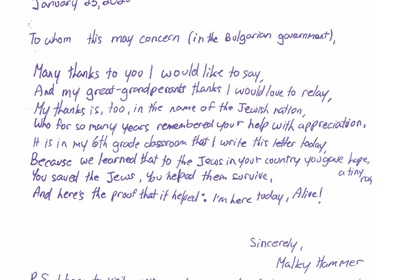 January 23, 2020
To whom this may concern (in the Bulgarian government),
Many thanks to you I would like to say,
And my great-grandparents thanks I would love to relay,
My thanks is, too, in the name of the Jewish nation,
Who for so many years remembered your help with appreciation,
It is in my 6th grade classroom that I write this letter today,
Because we learned that to the Jews in your country you gave hope, a tiny ray,
You saved the Jews, you helped them survive,
And here's the proof that it helped: I'm here today, Alive!
Sincerely,
Malky Hammer
P.S. I